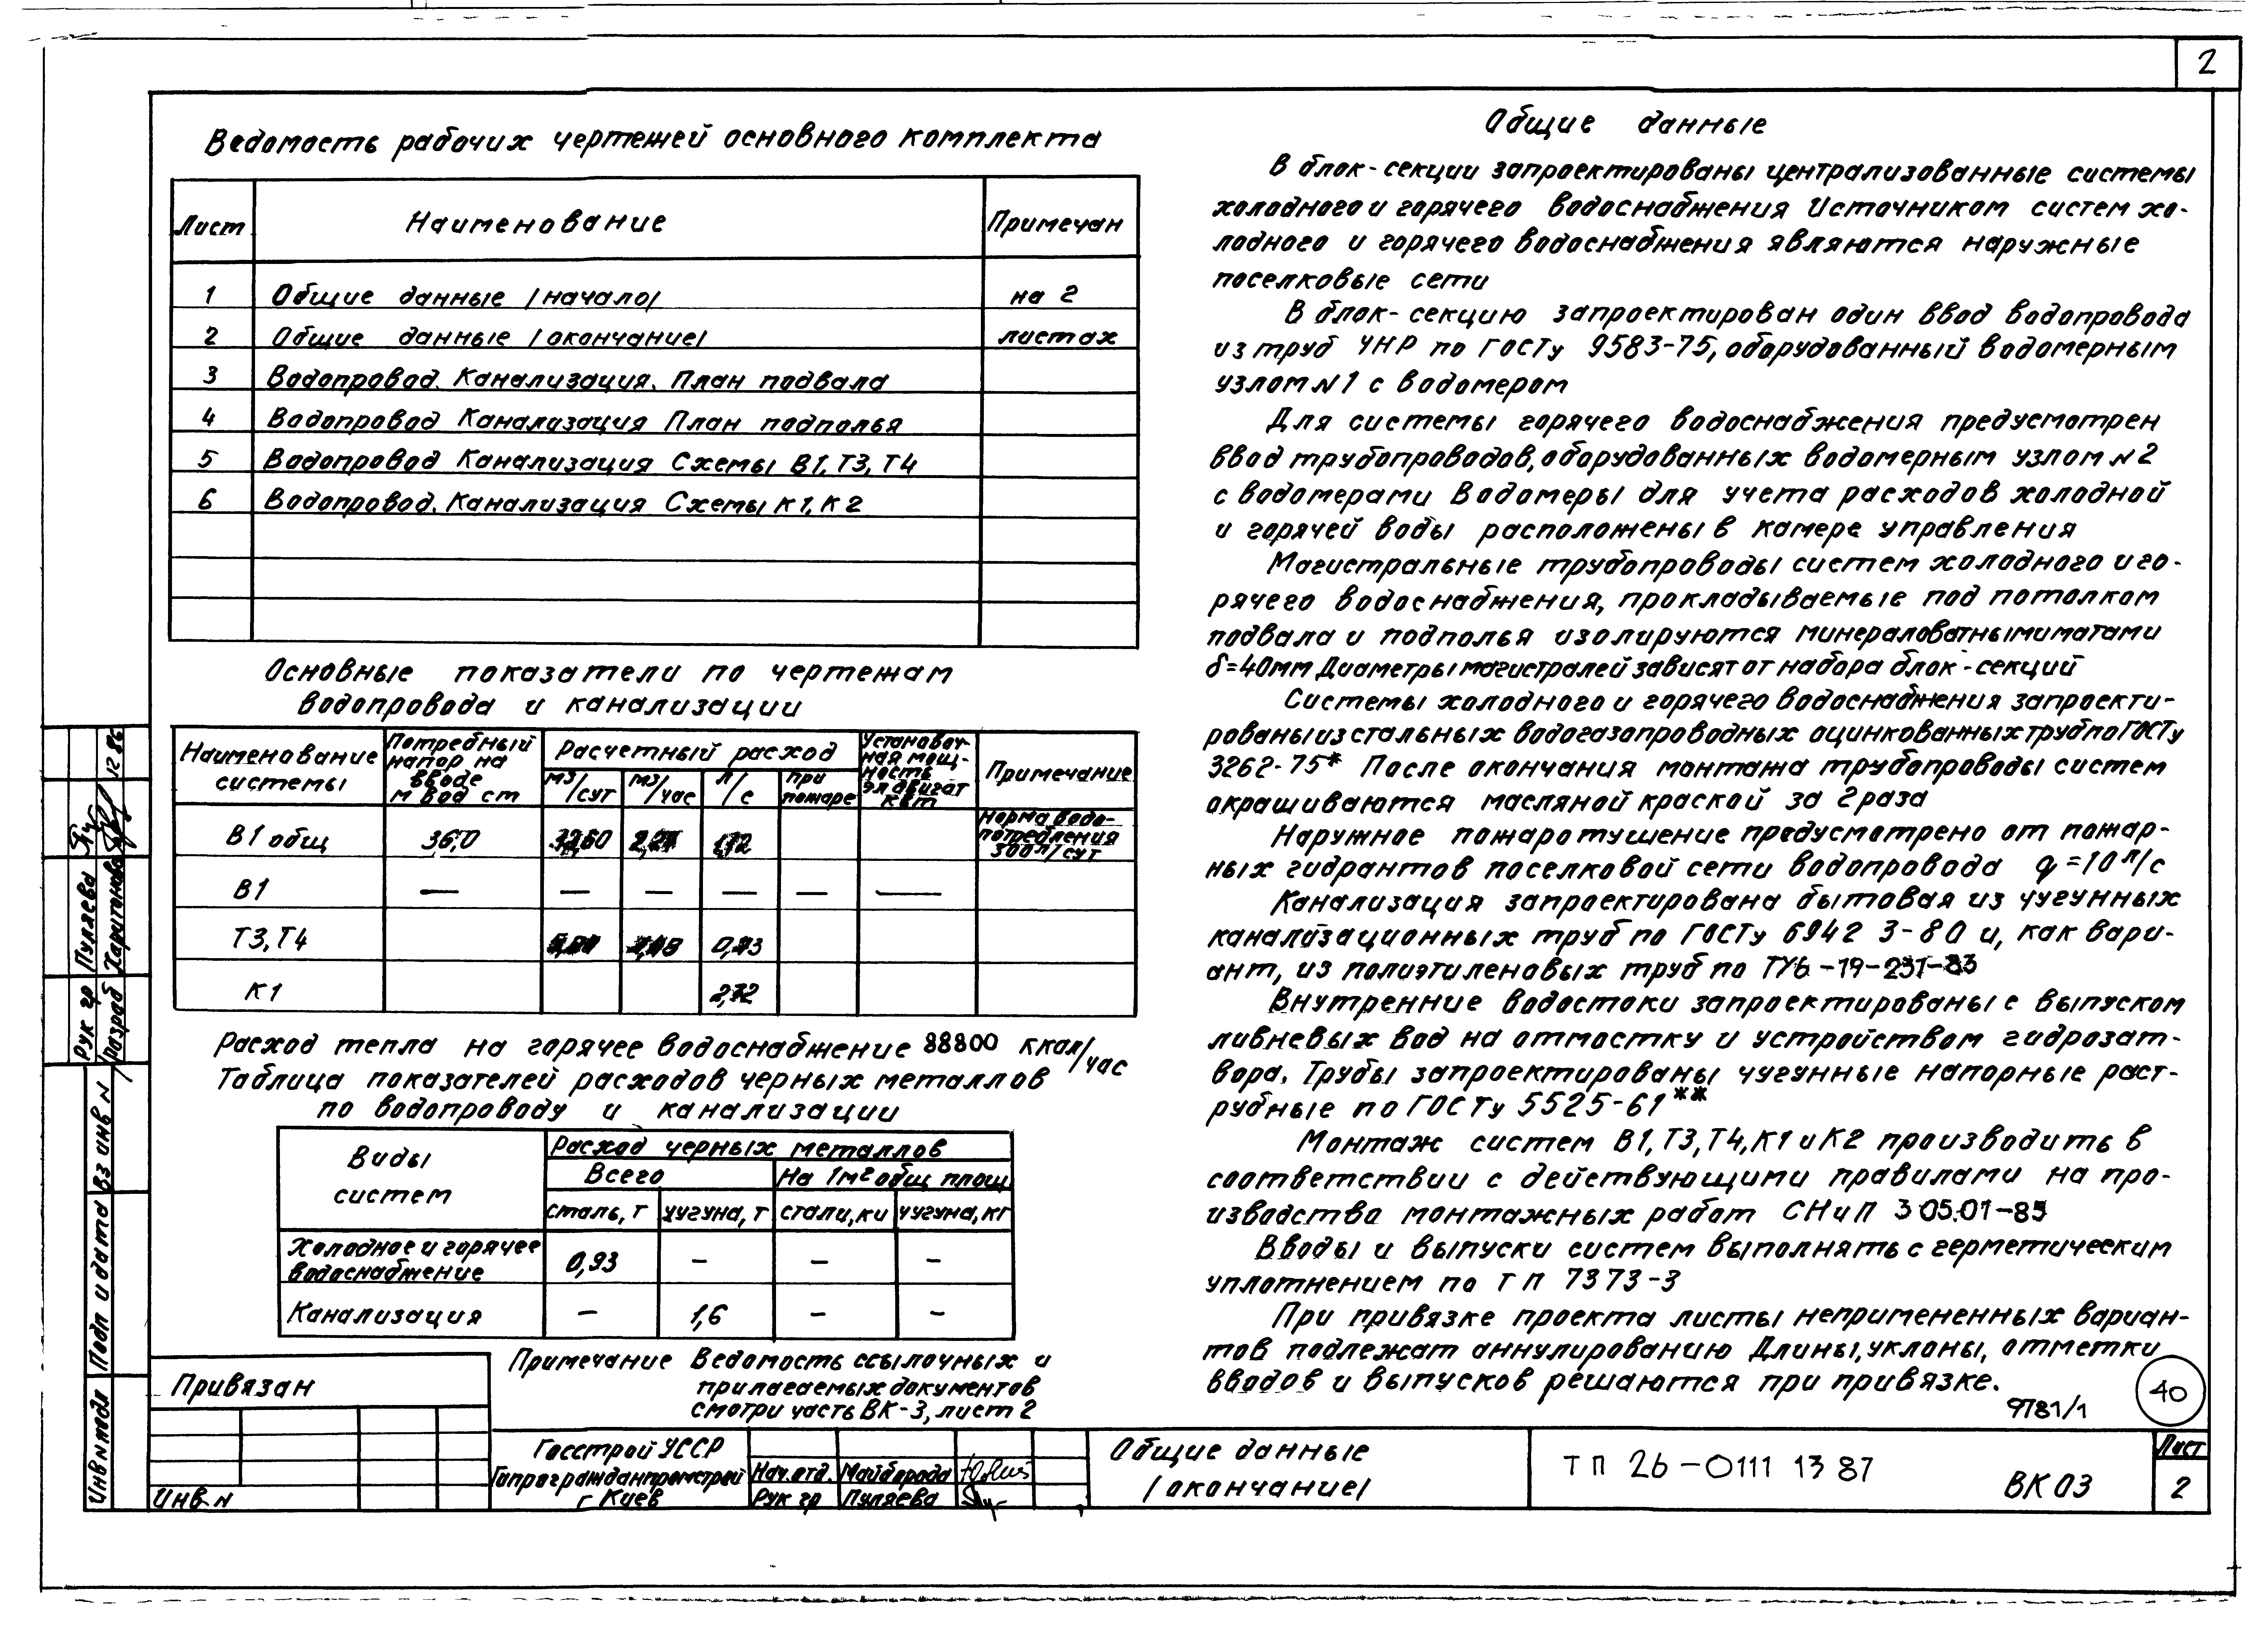 2
Ведомость рабочих чертежей основного комплекта
Лист Наименование Примечан
1 Общие данные /начало/ на 2
2 Общие данные /окончание/ листах
3 Водопровод. Канализация. План подвала
4 Водопровод Канализация План подполья
5 Водопровод Канализация Схемы В1, Т3, Т4
6 Водопровод. Канализация Схемы К1, К2
Основные показатели по чертежам
водопровода и канализации
Наименование системы
Потребный напор на вводе м вод ст
Расчетный расход
м3/сут м3/час л/с при пожаре
Установочная мощность эл двигат квт
Примечание
В1 общ 36,0
Норма водо-
потребления
300 л/сут
В1 — — — — — —
Т3, Т4
К1
Расход тепла на горячее водоснабжение 88800 ккал/час
Таблица показателей расходов черных металлов
по водопроводу и канализации
Виды систем
Расход черных металлов
Всего На 1м² общ площ.
сталь, т чугуна, т стали, кг чугуна, кг
Холодное и горячее
водоснабжение 0,93 – – –
Канализация – 1,6 – –
Примечание Ведомость ссылочных и
прилагаемых документов
смотри часть ВК-3, лист 2
Общие данные
В блок-секции запроектированы централизованные системы
холодного и горячего водоснабжения Источником систем хо-
лодного и горячего водоснабжения являются наружные
поселковые сети
В блок-секцию запроектирован один ввод водопровода
из труб ЧНР по ГОСТу 9583-75, оборудованный водомерным
узлом N1 с водомером
Для системы горячего водоснабжения предусмотрен
ввод трубопроводов, оборудованных водомерным узлом N2
с водомерами Водомеры для учета расходов холодной
и горячей воды расположены в камере управления
Магистральные трубопроводы систем холодного и го-
рячего водоснабжения, прокладываемые под потолком
подвала и подполья изолируются минераловатными матами
δ=40мм Диаметры магистралей зависят от набора блок-секций
Системы холодного и горячего водоснабжения запроекти-
рованы из стальных водогазопроводных оцинкованных труб по ГОСТу
3262-75* После окончания монтажа трубопроводы систем
окрашиваются масляной краской за 2 раза
Наружное пожаротушение предусмотрено от пожар-
ных гидрантов поселковой сети водопровода q=10 л/с
Канализация запроектирована бытовая из чугунных
канализационных труб по ГОСТу 6942 3-80 и, как вари-
ант, из полиэтиленовых труб по ТУ6-19-231-83
Внутренние водостоки запроектированы с выпуском
ливневых вод на отмостку и устройством гидрозат-
вора. Трубы запроектированы чугунные напорные раст-
рубные по ГОСТу 5525-61**
Монтаж систем В1, Т3, Т4, К1 и К2 производить в
соответствии с действующими правилами на про-
изводство монтажных работ СНиП 3 05.01-85
Вводы и выпуски систем выполнять с герметическим
уплотнением по ТП 7373-3
При привязке проекта листы непримененных вариан-
тов подлежат аннулированию Длины, уклоны, отметки
вводов и выпусков решаются при привязке.
9781/1
40
Привязан
Инв. N
Госстрой УССР
Гипрогражданпромстрой
г Киев
Нач. отд. Майборода
Рук гр Пуляева
Общие данные
/окончание/
ТП 26-0111 13 87
ВК 03
Лист
2
Рук гр Пуляева
Разраб Харитонова 12 86
Вз инв N
Подп и дата
Инв N подл